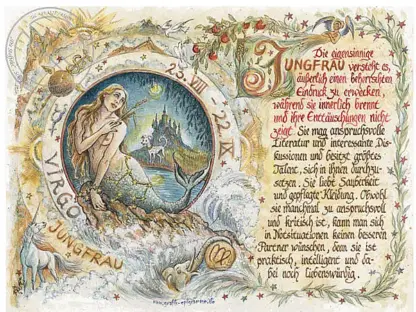 23. VIII - 22. IX
VIRGO
JUNGFRAU
Die eigensinnige
JUNGFRAU versteht es,
äußerlich einen beherrschten
Eindruck zu erwecken,
während sie innerlich brennt
und ihre Enttäuschungen nicht
zeigt. Sie mag anspruchsvolle
Literatur und interessante Dis-
kussionen und besitzt größtes
Talent, sich in ihnen durchzu-
setzen. Sie liebt Sauberkeit
und gepflegte Kleidung. Obwohl
sie manchmal zu anspruchsvoll
und kritisch ist, kann man sich
in Notsituationen keinen besseren
Partner wünschen, denn sie ist
praktisch, intelligent und da-
bei noch liebenswürdig.